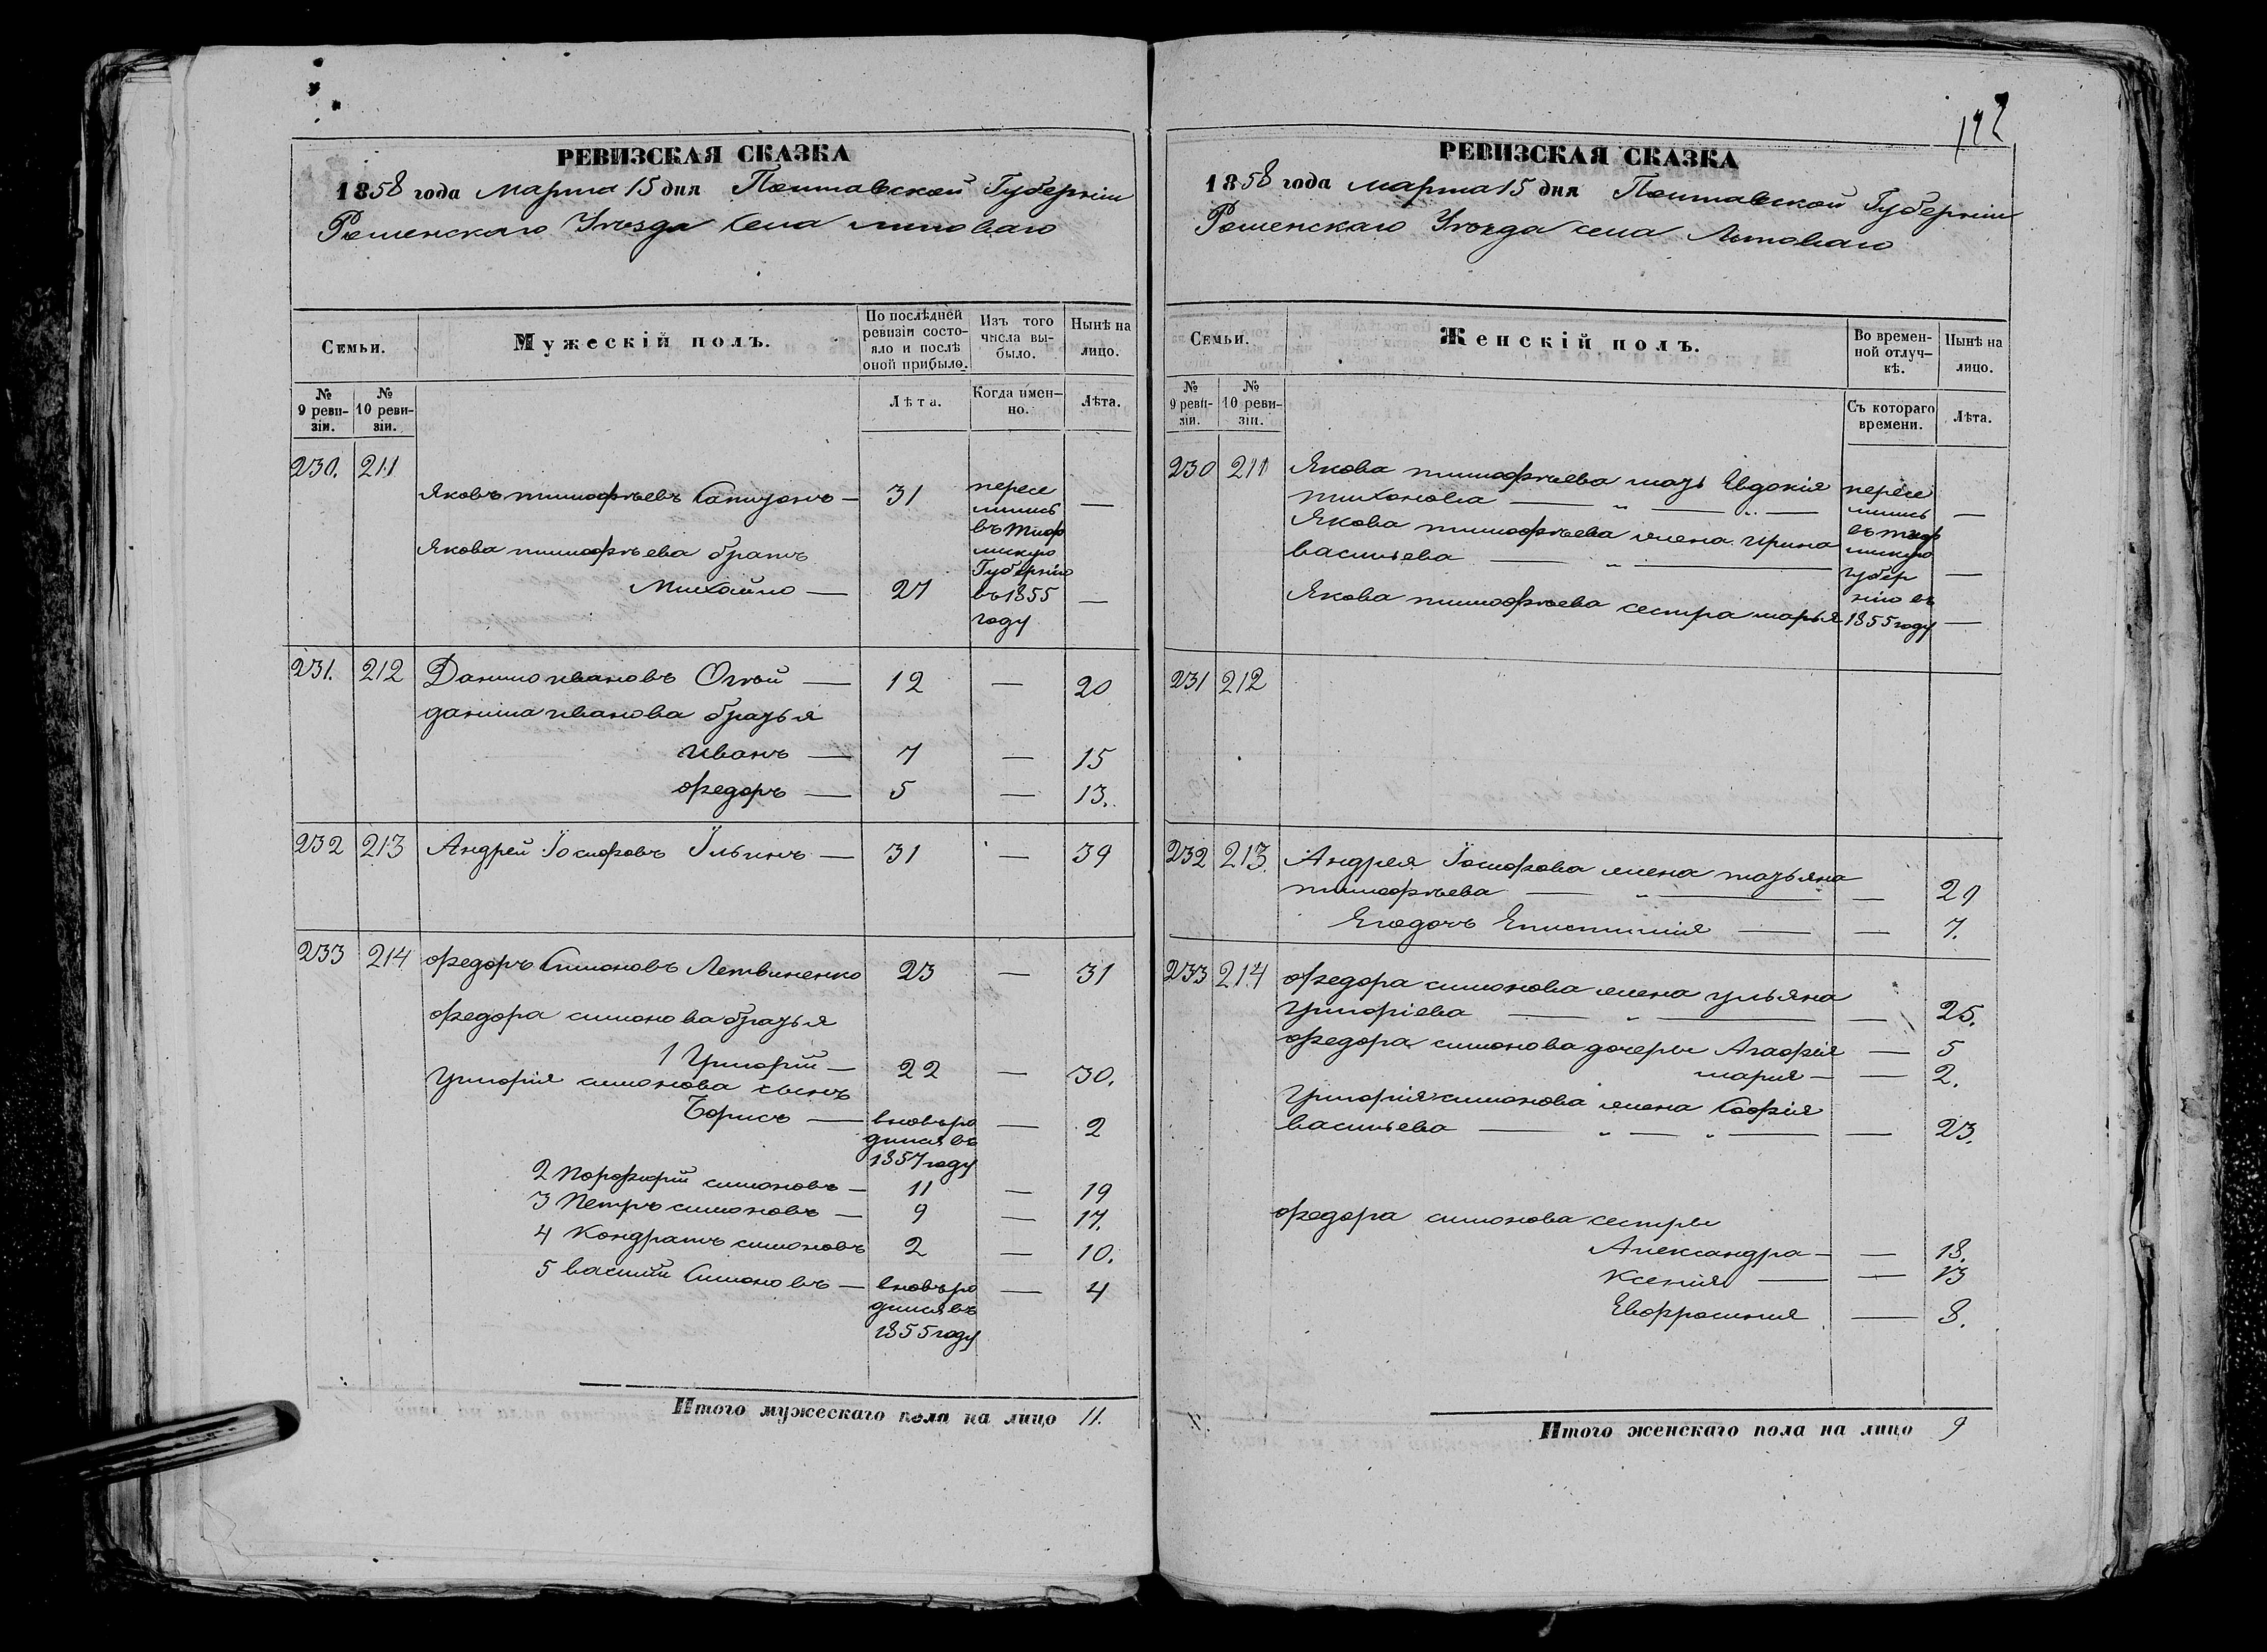 РЕВИЗСКАЯ СКАЗКА
1858 года Марта 15 дня Полтавской Губерніи
Роменскаго Уѣзда Села Липоваго
Семьи.
Мужескій полъ.
По послѣдней ревизіи состояло и послѣ оной прибыло.
Изъ того числа выбыло.
Нынѣ на лицо.
№ 9 ревизіи.
№ 10 ревизіи.
Лѣта.
Когда именно.
Лѣта.
230. 211
Яковъ тимофѣевъ — 31 пересе лились въ Тиф —
Якова тимофѣева братъ
Михайло — 27 Губернію въ 1855 году —
231. 212 Данило ивановъ — 12 — 20
данила иванова братья
иванъ — 7 — 15
федоръ — 5 — 13.
232 213 Андрей Іосифовъ Ильинъ — 31 — 39
233 214 федоръ Симоновъ Летвиненко 23 — 31
федора симонова братья
1 Григорій — 22 — 30.
григорія симонова сынъ
Борисъ — вновь ро дился въ 1857 году — 2
2 Порфирій симоновъ — 11 — 19
3 Петръ симоновъ — 9 — 17.
4 Кондратъ симоновъ 2 — 10.
5 василій Симоновъ — вновь ро дился въ 1855 году — 4
Итого мужескаго пола на лицо 11.
122
РЕВИЗСКАЯ СКАЗКА
1858 года марта 15 дня Полтавской Губерніи
Роменскаго Уѣзда села Липоваго
Семьи.
Женскій полъ.
Во временной отлучкѣ.
Нынѣ на лицо.
№ 9 ревизіи.
№ 10 ревизіи.
Съ котораго времени.
Лѣта.
230 211 Якова тимофѣева мать Евдокія
тихонова — „ — „ — пересе лились —
Якова тимофѣева жена ирина
васильева — „ — губер нію въ —
Якова тимофѣева сестра марья 1855 году —
231 212
232 213. Андрея Іосифова жена татьяна
тимофѣева — „ — — 29
Его дочь Епистимія — — 7.
233 214 федора симонова жена ульяна
григоріева — „ — — 25.
федора симонова дочери Агафія — 5
марія — — 2.
григорія симонова жена Софія
васильева — „ — „ — — 23.
федора симонова сестры
Александра — — 18.
Ксенія — — 13
Евфросинія — 8.
Итого женскаго пола на лицо 9